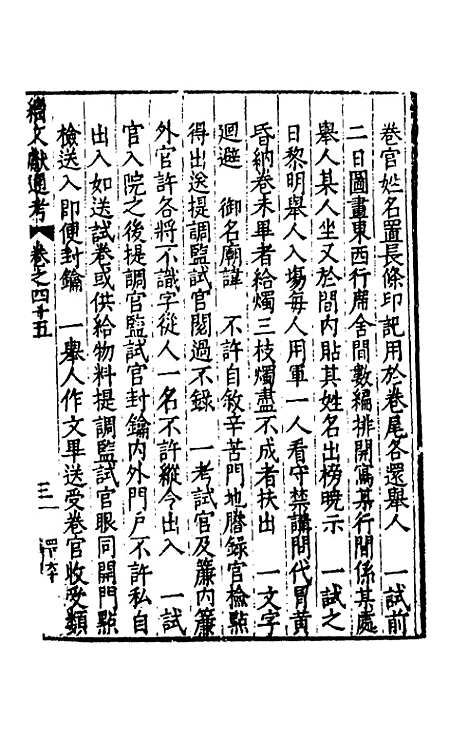 卷官姓名置長條印記用於卷尾各還舉人　一試前
二日圖畫東西行席舍間數編排開寫某行間係某處
舉人某人坐又於間內貼其姓名出榜曉示　一試之
日黎明舉人入場每人用軍一人看守禁講問代冒黃
昏納卷未畢者給燭三枝燭盡不成者扶出　一文字
迴避　御名廟諱　不許自敘辛苦門地謄錄官檢點
得出送提調監試官閱過不錄　一考試官及簾內簾
外官許各將不識字從人一名不許縱令出入　一試
官入院之後提調官監試官封鑰內外門戶不許私自
出入如送試卷或供給物料提調監試官眼同開門點
檢送入即便封鑰　一舉人作文畢送受卷官收受類
續文獻通考　卷之四十五　三